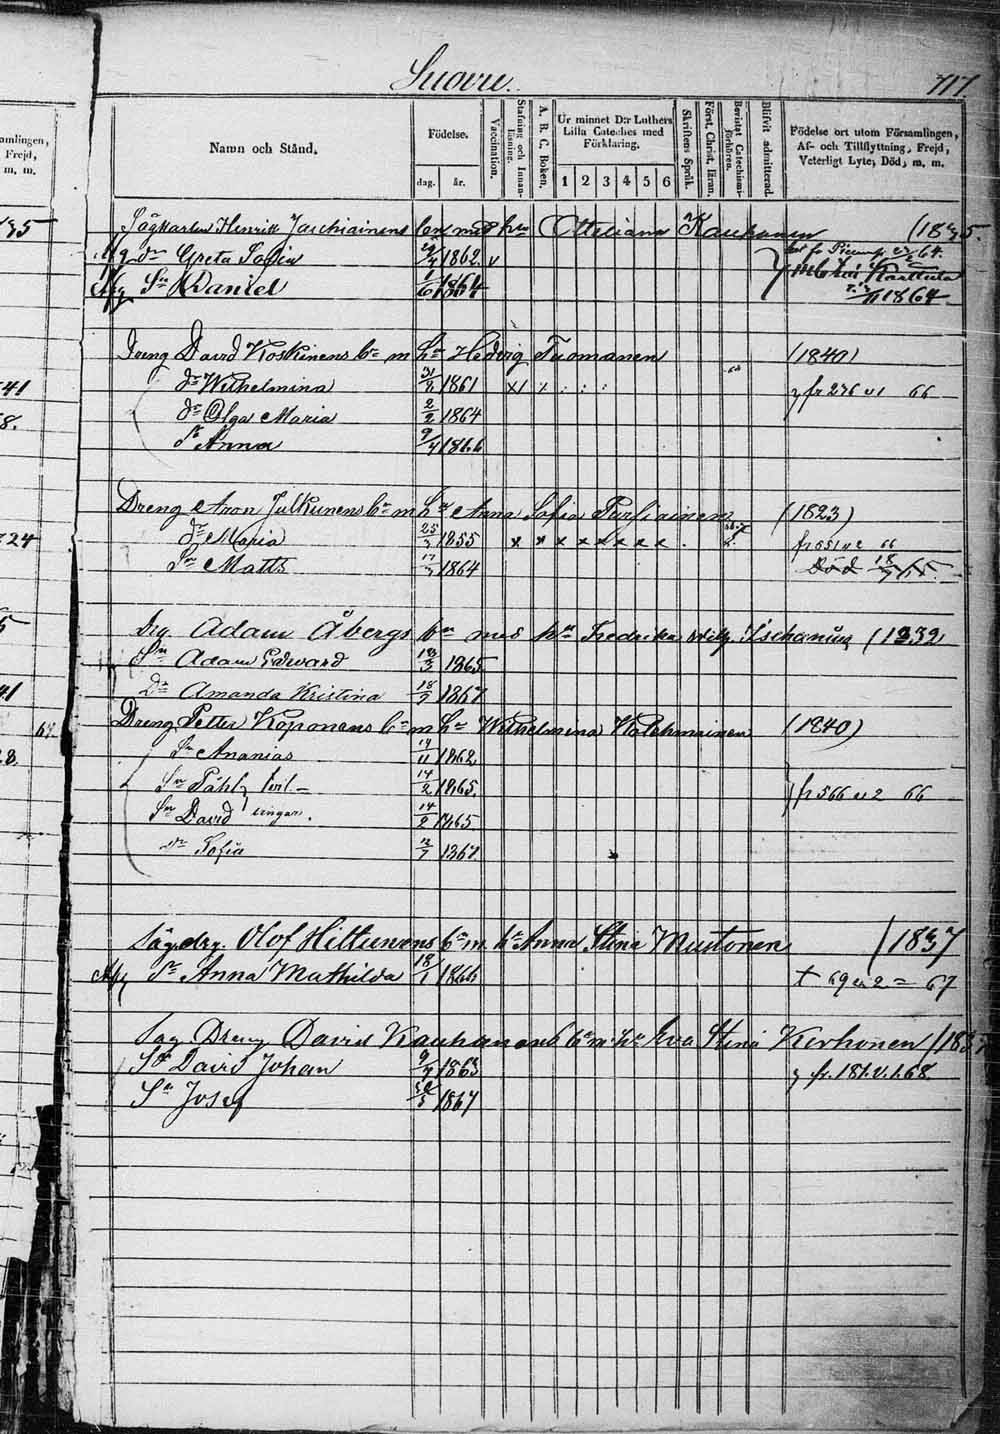 Suovre.
717.
Namn och Stånd.
Födelse.
dag. år.
Vaccination.
Stafning och Innanläsning.
A. B. C. Boken.
Ur minnet D:r Luthers Lilla Cateches med Förklaring.
1 2 3 4 5 6
Skriftens Språk.
Först. Christ. läran.
Bevistat Catechismiförhören.
Blifvit admitterad.
Födelse ort utom Församlingen, Af- och Tillflyttning, Frejd, Veterligt Lyte, Död, m. m.
amlingen, Frejd, m. m.
Sågkarlen Henrik Jaschiainens bn med hu Otteliana Kauhanen (1835.
dr Greta Sofia 1862. v
Sn Daniel 6 1864 Karttula 1864
Dreng David Koskinens bn m hu Hedvig Tuomanen (1840)
dr Wilhelmina 31/3 1861 fr 276 v 1 66
dr Olga Maria 2/2 1864
dr Anna 9/4 1866
Dreng Aron Julkunens bn m hu Anna Sofia Pursiainen (1823)
dr Maria 25/3 1855 x x x x x x x fr 551 v 2 66
Sn Matts 17/3 1864 Död 18/7 65.
Drg. Adam Åbergs bn med hu Fredrika Wilh. (1832)
Sn Adam Edward 13/3 1865
Dr Amanda Kristina 18/9 1867
Dreng Petter Koponens bn m hu Wilhelmina Holehmainen (1840)
Sn Ananias 19/11 1862
Sn Påhl 14/2 1865. fr 566 v 2 66
Sn David 14/2 1865. tvil-lingar.
dr Sofia 1867
Såg. drg. Olof Hiltunens bn m. hu Anna Stina Mustonen (1837
dr Anna Mathilda 18/1 1866 + 69 v 2 = 67
Såg Dreng David Kauhanens bn m hu Eva Stina Kerhonen
Sn David Johan 9/7 1863 fr. 181. v. 1. 68.
Sn Josef 1867